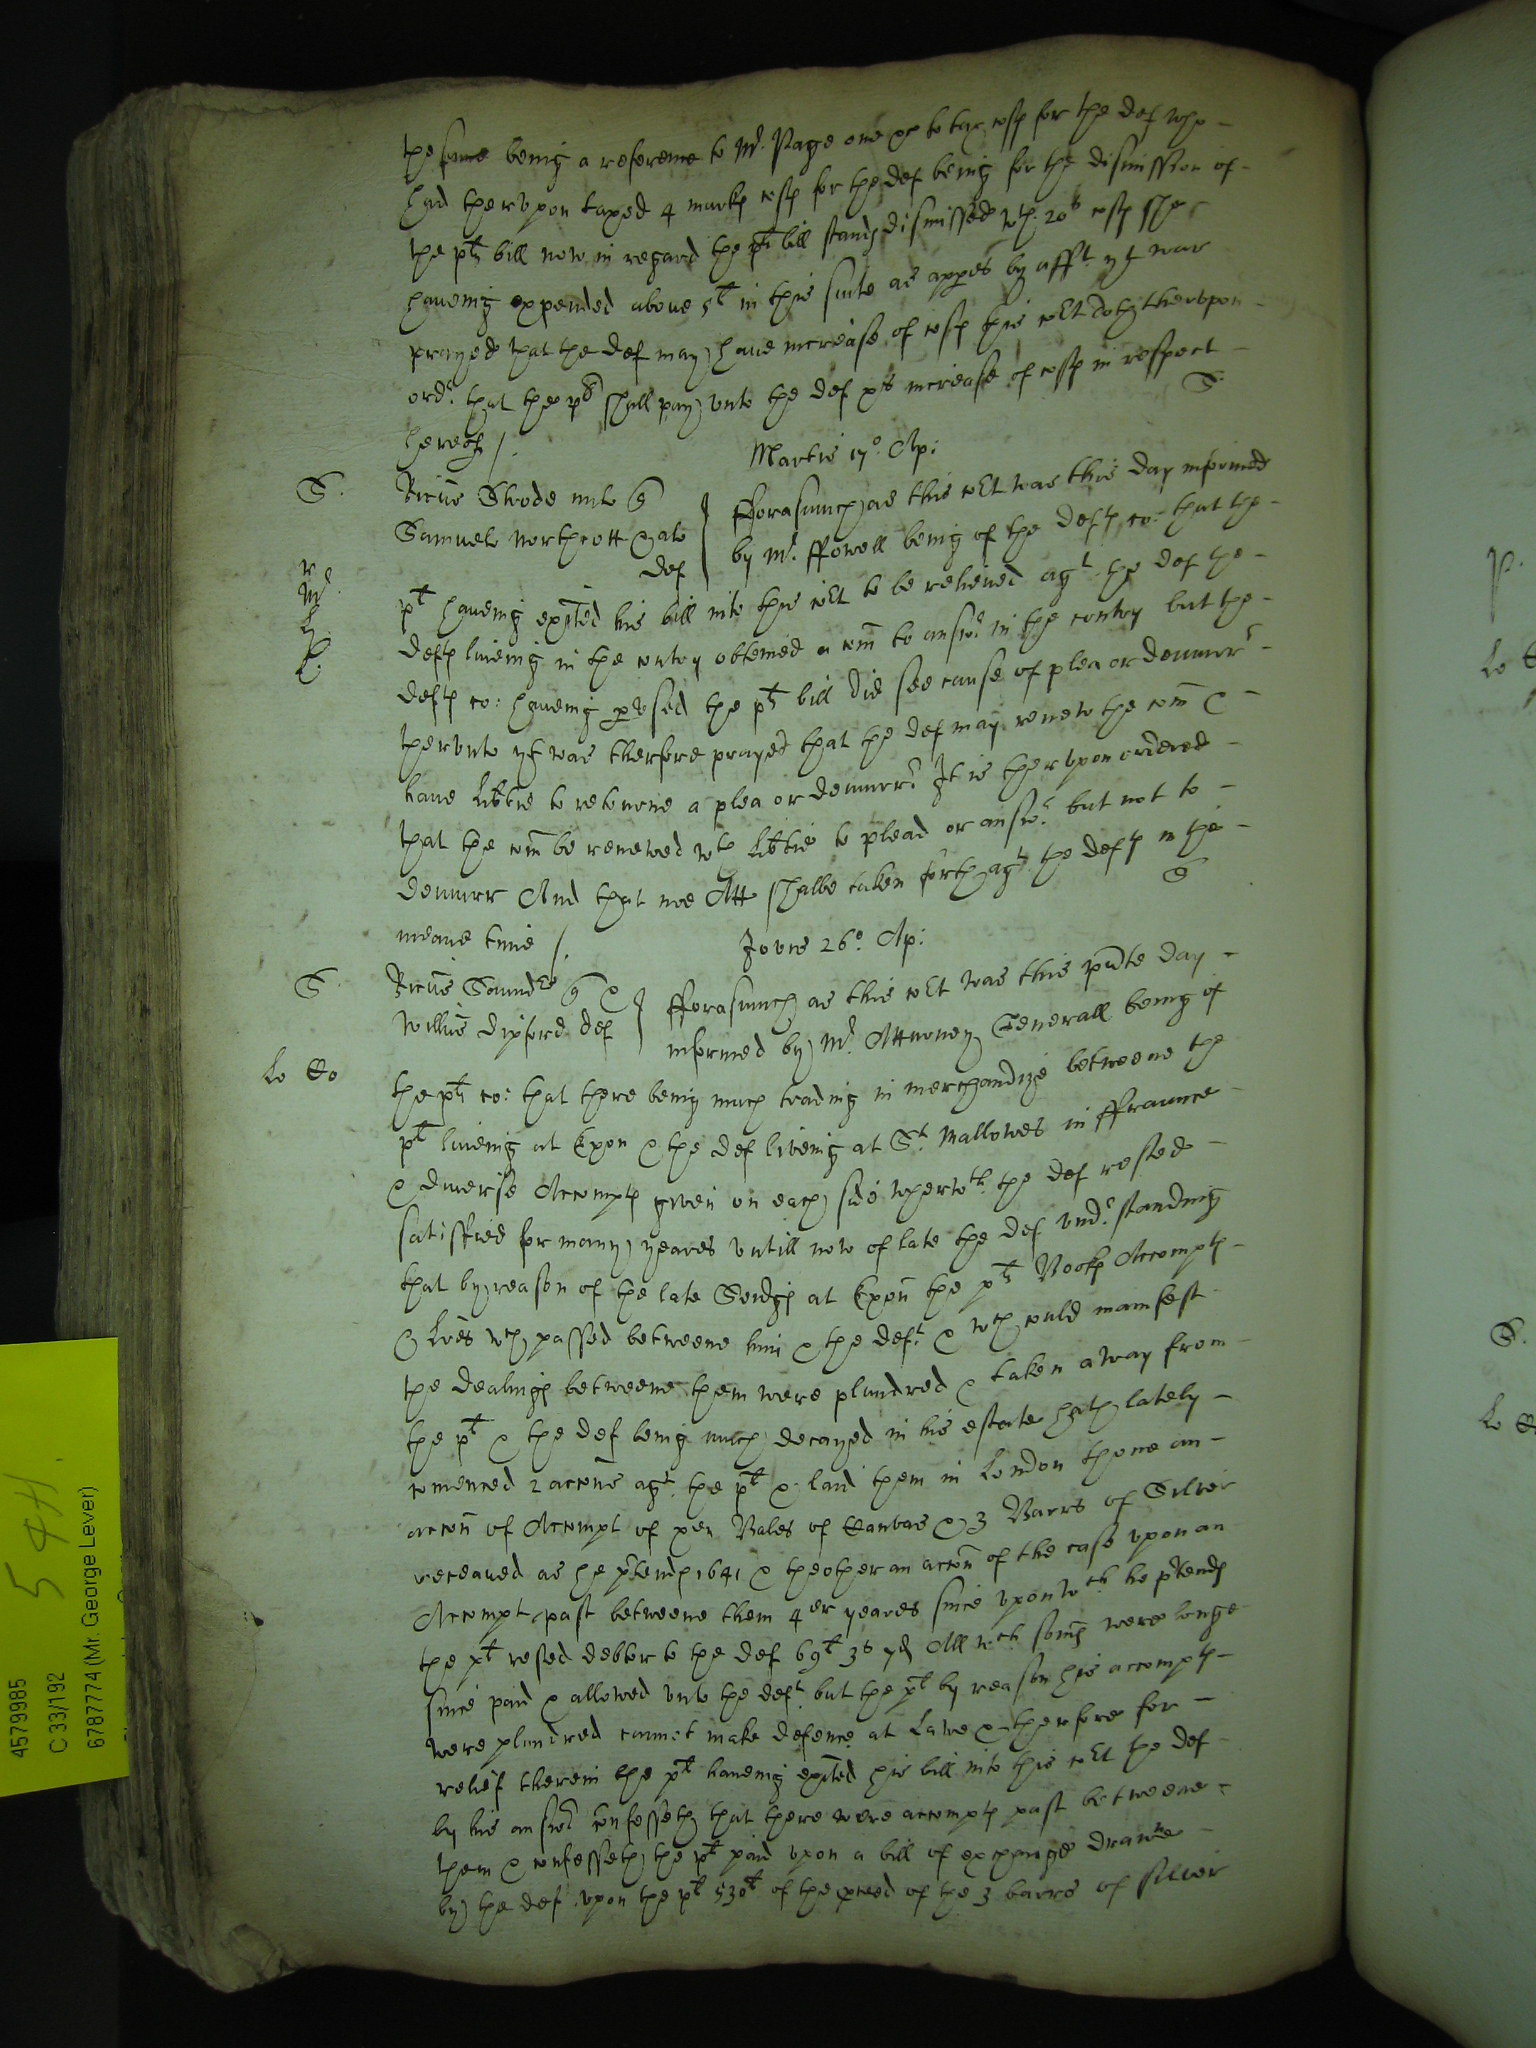 the same being a reference to Mr. Page one &c to tax costs for the def who
had thervpon taxed 4 marks costs for the def being for the dismission of
the plts bill now in regard the plts bill stands dismissed wth. 20s costs she
haveing expended above 5l in this suite as appes by afft. yt was
prayed that the def may have increase of costs this cort doth thervpon
ordr. that the plt shall pay vnto the def xs increase of costs in respect
hereof /.
S
Martis 17o. Ap:
S.
Ricus Strode milt q
Samuele Northcott & als
def
fforasmuch as this cort was this day informed
by Mr. ffowell being of the defts co: that the
r
Mr.
Ly
plt haveing exited his bill into this cort to be releived agt. the def the
defts liveing in the contry obteined a com to answr in the contry but the
defts co: haveing pvsed the plts bill did see cause of plea or demurrr
thervnto yt was therfore prayed that the def may renew the com &
have libtie to retorne a plea or demurrr. It is thervpon ordered
that the com be renewed wth libtie to plead or answr. but not to
demurr And that noe Att shalbe taken forth agt the defts in the
meane time /.
S
Jovis 26o. Ap:
S.
Ricus Saundrs q &
Willus Dixford def
fforasmuch as this cort was this pnte day
informed by Mr. Atturney Generall being of
Lo Co
the plts co: that there being much trading in merchandize betweene the
plt liveing at Exon & the def liveing at St. Mallowes in ffraunce
& diverse Accompts given on each side wherwth. the def rested
satisffied for many yeares vntill now of late the def vndrstanding
that by reason of the late Seidge at Exon the plts Books Accompts
& Lres wch passed betweene him & the deft. & wch could manifest
the dealings betweene them were plundred & taken away from
the plt & the def being much decayed in his estate hath lately
comenced 2 accons agt. the plt & laid them in London thone an
accon of Accompt of Bales of Canvas & 3 Barrs of Silver
receaved as he ptends 1641 & theother an accon of the case vpon an
Accompt past betweene them 4er yeares since vpon wch he ptends
the plt rested debtor to the def 69l 3s 7d All wch somes were longe
since paid & allowed vnto the deft. but the plt by reason his accompts
were plundred cannot make defence at Lawe & therfore for
releif therein the plt haveing exited his bill into this cort the def
by his answr confesseth that there were accompts past betweene
them & confesseth the plt paid vpon a bill of exchange drawne
by the def vpon the plt 530l of the pceed of the 3 barrs of silver
P.
Lo
S.
Lo
5 4H.
4579985
C 33/192
6787774 (Mr. George Lever)